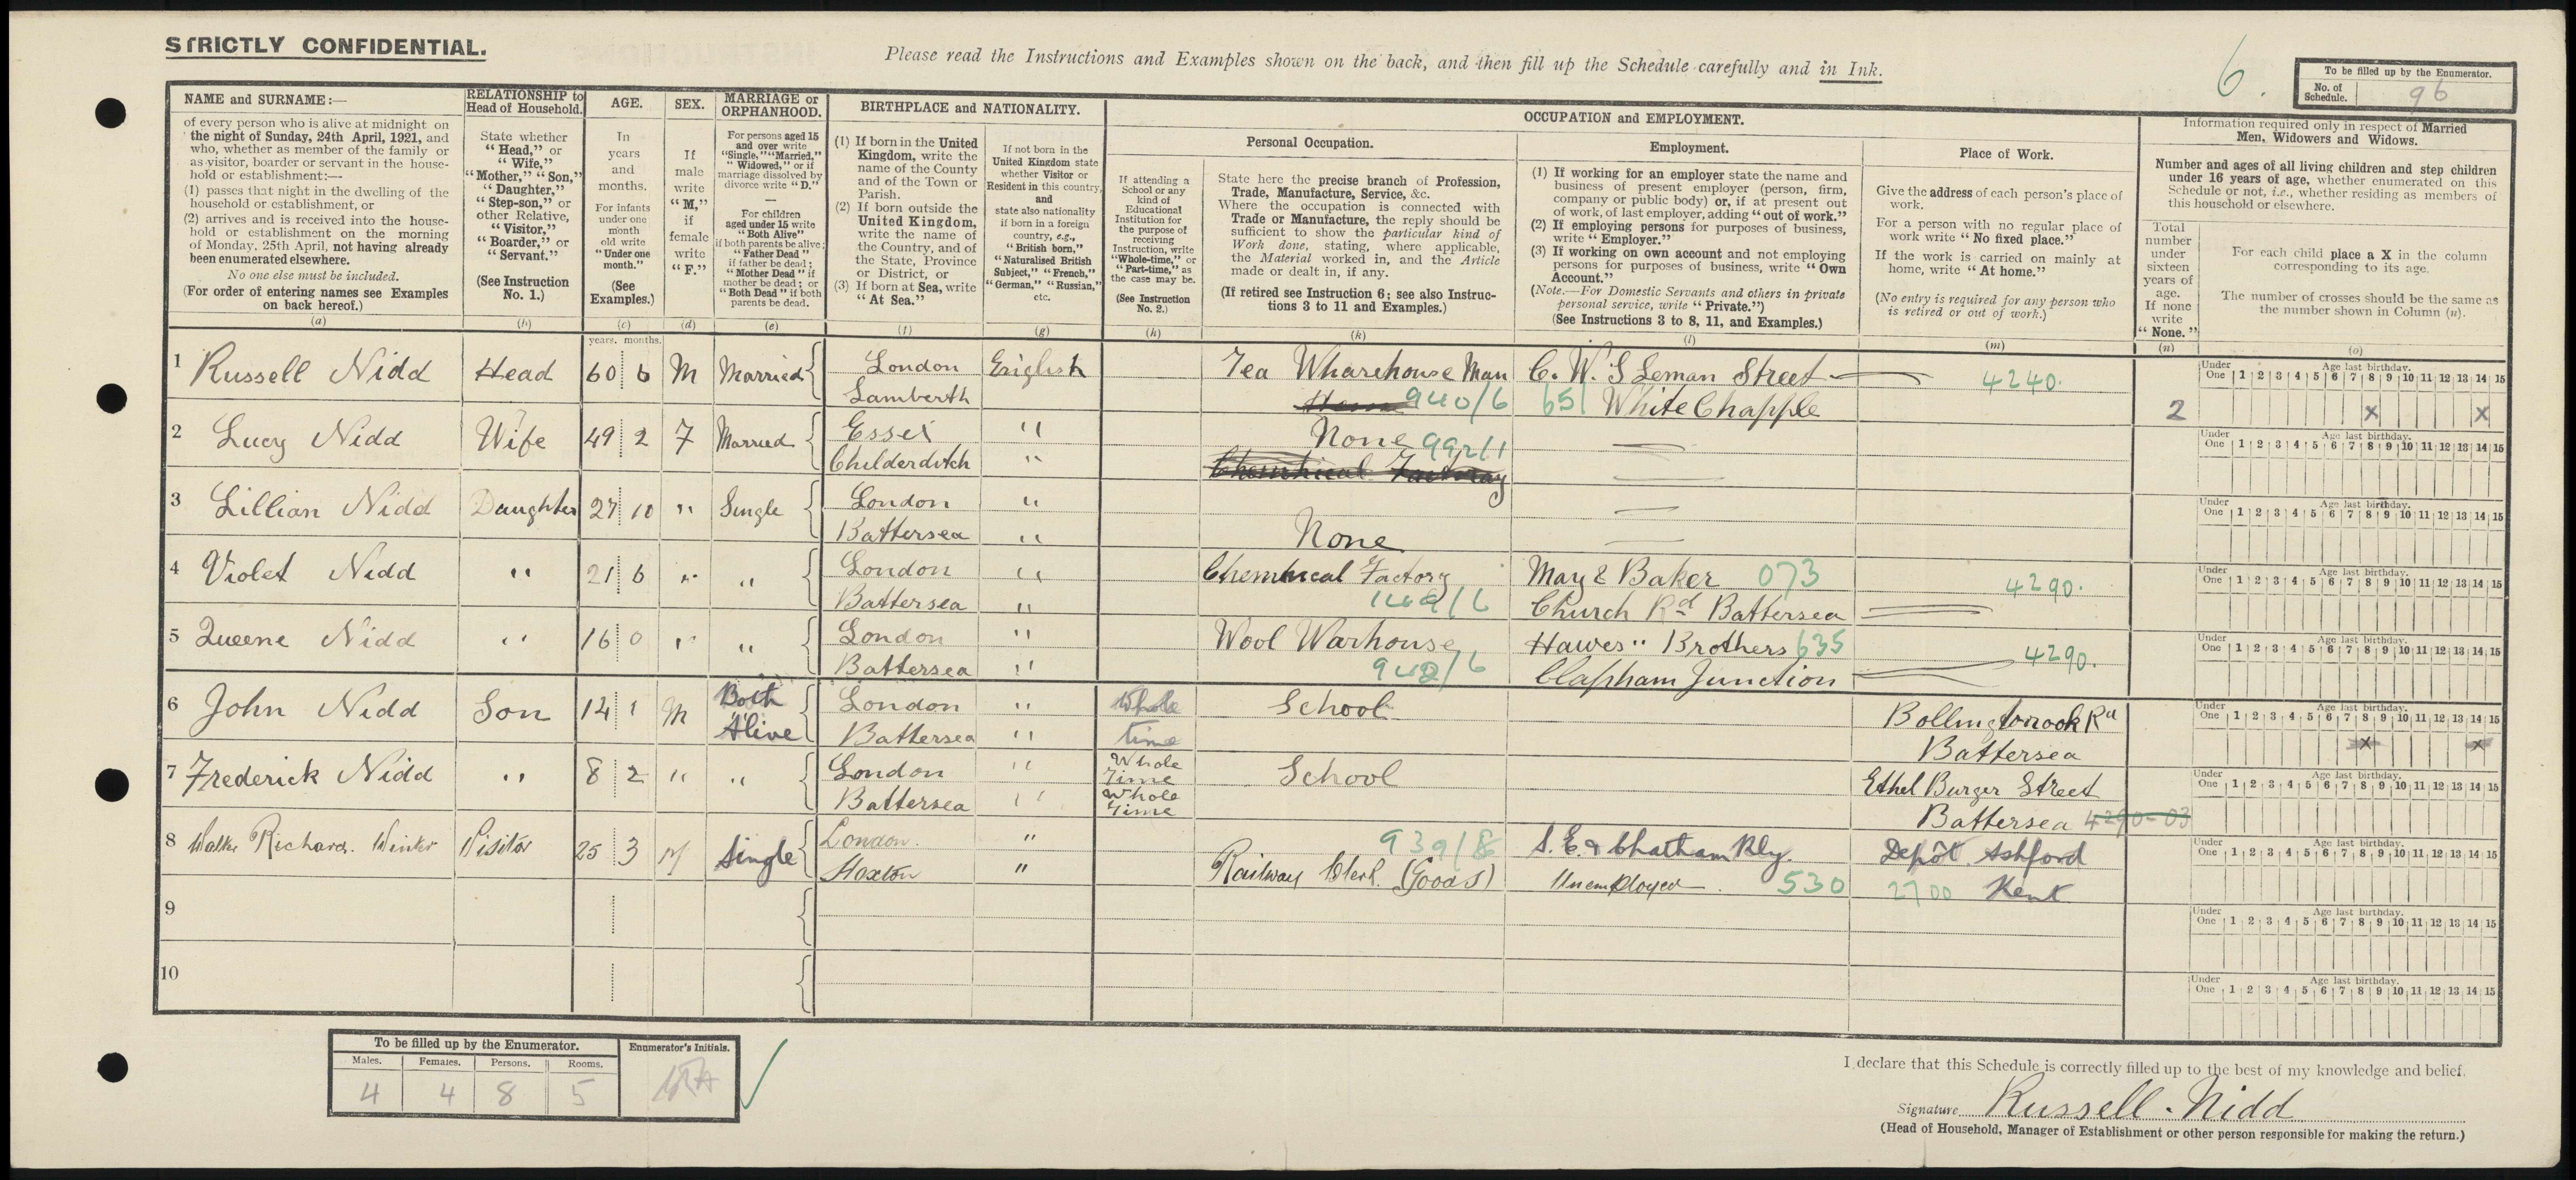 STRICTLY CONFIDENTIAL.
Please read the Instructions and Examples shown on the back, and then fill up the Schedule carefully and in Ink.
6.
To be filled up by the Enumerator.
No. of Schedule. 96
NAME and SURNAME:—
of every person who is alive at midnight on
the night of Sunday, 24th April, 1921, and
who, whether as member of the family or
as visitor, boarder or servant in the house-
hold or establishment:—
(1) passes that night in the dwelling of the
household or establishment, or
(2) arrives and is received into the house-
hold or establishment on the morning
of Monday, 25th April, not having already
been enumerated elsewhere.
No one else must be included.
(For order of entering names see Examples
on back hereof.)
(a)
RELATIONSHIP to
Head of Household.
State whether
"Head," or
"Wife,"
"Mother," "Son,"
"Daughter,"
"Step-son," or
other Relative,
"Visitor,"
"Boarder," or
"Servant."
(See Instruction
No. 1.)
(b)
AGE.
In
years
and
months.
For infants
under one
month
old write
"Under one
month."
(See
Examples.)
(c)
years. months.
SEX.
If
male
write
"M,"
if
female
write
"F."
(d)
MARRIAGE or
ORPHANHOOD.
For persons aged 15
and over write
"Single," "Married,"
"Widowed," or if
marriage dissolved by
divorce write "D."
—
For children
aged under 15 write
"Both Alive"
if both parents be alive;
"Father Dead"
if father be dead;
"Mother Dead" if
mother be dead; or
"Both Dead" if both
parents be dead.
(e)
BIRTHPLACE and NATIONALITY.
(1) If born in the United
Kingdom, write the
name of the County
and of the Town or
Parish.
(2) If born outside the
United Kingdom,
write the name of
the Country, and of
the State, Province
or District, or
(3) If born at Sea, write
"At Sea."
(f)
If not born in the
United Kingdom state
whether Visitor or
Resident in this country,
and
state also nationality
if born in a foreign
country, e.g.,
"British born,"
"Naturalised British
Subject," "French,"
"German," "Russian,"
etc.
(g)
OCCUPATION and EMPLOYMENT.
If attending a
School or any
kind of
Educational
Institution for
the purpose of
receiving
Instruction, write
"Whole-time," or
"Part-time," as
the case may be.
(See Instruction
No. 2.)
(h)
Personal Occupation.
State here the precise branch of Profession,
Trade, Manufacture, Service, &c.
Where the occupation is connected with
Trade or Manufacture, the reply should be
sufficient to show the particular kind of
Work done, stating, where applicable,
the Material worked in, and the Article
made or dealt in, if any.
(If retired see Instruction 6; see also Instruc-
tions 3 to 11 and Examples.)
(k)
Employment.
(1) If working for an employer state the name and
business of present employer (person, firm,
company or public body) or, if at present out
of work, of last employer, adding "out of work."
(2) If employing persons for purposes of business,
write "Employer."
(3) If working on own account and not employing
persons for purposes of business, write "Own
Account."
(Note.—For Domestic Servants and others in private
personal service, write "Private.")
(See Instructions 3 to 8, 11, and Examples.)
(l)
Place of Work.
Give the address of each person's place of
work.
For a person with no regular place of
work write "No fixed place."
If the work is carried on mainly at
home, write "At home."
(No entry is required for any person who
is retired or out of work.)
(m)
Information required only in respect of Married
Men, Widowers and Widows.
Number and ages of all living children and step children
under 16 years of age, whether enumerated on this
Schedule or not, i.e., whether residing as members of
this household or elsewhere.
Total
number
under
sixteen
years of
age.
If none
write
"None."
(n)
For each child place a X in the column
corresponding to its age.
The number of crosses should be the same as
the number shown in Column (n).
(o)
Under One Age last birthday. 1 2 3 4 5 6 7 8 9 10 11 12 13 14 15
1 Russell Nidd Head 60 6 M Married London English Tea Wharehouse Man C. W. S Leman Street 4240.
Lamberth 940/6 651 White Chapple 2 x x
2 Lucy Nidd Wife 49 2 F Married Essex " None 992/1
Childerditch " Chemhical Factory
3 Lillian Nidd Daughter 27 10 " Single London "
Battersea " None
4 Violet Nidd " 21 6 " " London " Chemhical Factory May & Baker 073 4290.
Battersea " 149/6 Church Rd Battersea
5 Queene Nidd " 16 0 " " London " Wool Warhouse Hawes " Brothers 635 4290.
Battersea " 942/6 Clapham Junction
6 John Nidd Son 14 1 M Both London " Whole School Bollingbrook Rd
Alive Battersea " time Battersea x x
7 Frederick Nidd " 8 2 " " London " Whole Time School Ethel Burger Street
Battersea " Whole Time Battersea 4290-03
8 Walter Richard. Winter Visitor 25 3 M Single London. " 939/8 S. E. & Chatham Rly. Depôt Ashford
Hoxton " Railway Clerk. (Goods) Unemployed 530 2700 Kent
9
10
To be filled up by the Enumerator.
Males. Females. Persons. Rooms.
4 4 8 5
Enumerator's Initials.
I declare that this Schedule is correctly filled up to the best of my knowledge and belief.
Signature Russell Nidd
(Head of Household, Manager of Establishment or other person responsible for making the return.)